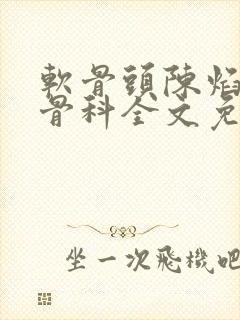 軟骨頭陳焰
骨科全文免
坐一次飛機吧